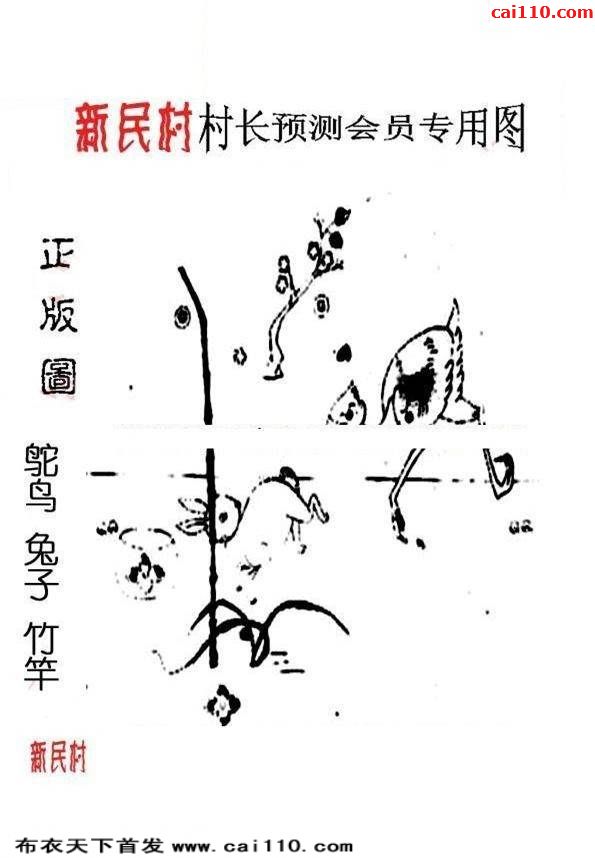 cai110.com
新民村村长预测会员专用图
正版圖
鸵鸟 兔子 竹竿
新民村
布衣天下首发 www.cai110.com